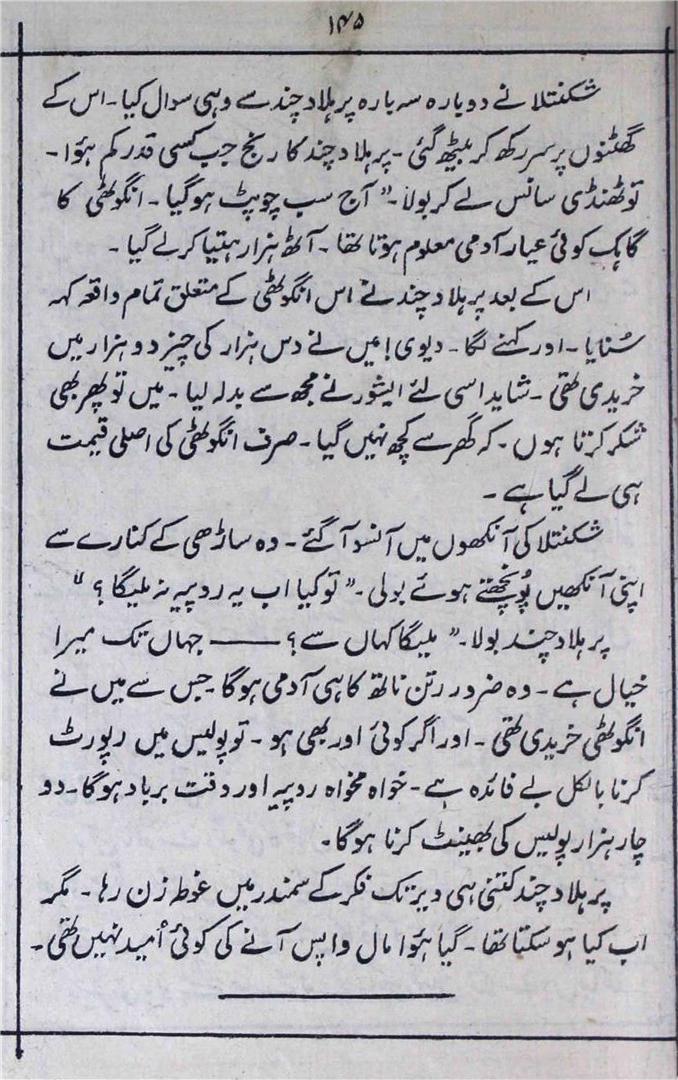 ۱۴۵
شکنتلا نے دوبارہ سہ بارہ پرہلاد چند سے وہی سوال کیا۔ اس کے
گھٹنوں پر سر رکھ کر بیٹھ گئی۔ پرہلاد چند کا رنج جب کسی قدر کم ہؤا۔
تو ٹھنڈی سانس لے کر بولا۔ "آج سب چوپٹ ہوگیا۔ انگوٹھی کا
گاہک کوئی عیار آدمی معلوم ہوتا تھا۔ آٹھ ہزار ہتیا کر لے گیا۔
اس کے بعد پرہلاد چند نے اس انگوٹھی کے متعلق تمام واقعہ کہہ
سُنایا۔ اور کہنے لگا۔ دیوی! میں نے دس ہزار کی چیز دو ہزار میں
خریدی تھی۔ شاید اسی لئے ایشور نے مجھ سے بدلہ لیا۔ میں تو پھر بھی
شکر کرتا ہوں۔ کہ گھر سے کچھ نہیں گیا۔ صرف انگوٹھی کی اصلی قیمت
ہی لے گیا ہے۔
شکنتلا کی آنکھوں میں آنسو آگئے۔ وہ ساڑھی کے کنارے سے
اپنی آنکھیں پُونچھتے ہوئے بولی۔ "تو کیا اب یہ روپیہ نہ ملیگا؟"
پرہلاد چند بولا۔ "ملیگا کہاں سے؟ —— جہاں تک میرا
خیال ہے۔ وہ ضرور رتن ناتھ کا ہی آدمی ہوگا جس سے میں نے
انگوٹھی خریدی تھی۔ اور اگر کوئی اور بھی ہو۔ تو پولیس میں رپورٹ
کرنا بالکل بے فائدہ ہے۔ خواہ مخواہ روپیہ اور وقت برباد ہوگا۔ دو
چار ہزار پولیس کی بھینٹ کرنا ہوگا۔
پرہلاد چند کتنی ہی دیر تک فکر کے سمندر میں غوطہ زن رہا۔ مگر
اب کیا ہوسکتا تھا۔ گیا ہؤا مال واپس آنے کی کوئی اُمید نہیں تھی۔